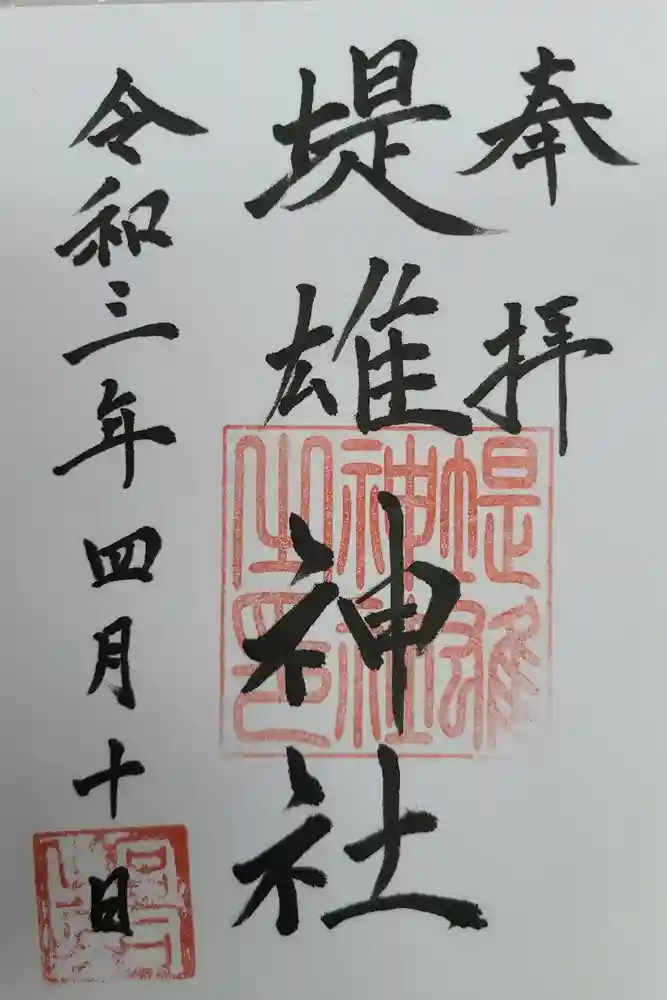 奉拝
堤雄神社
令和三年四月十日
堤雄神社之印